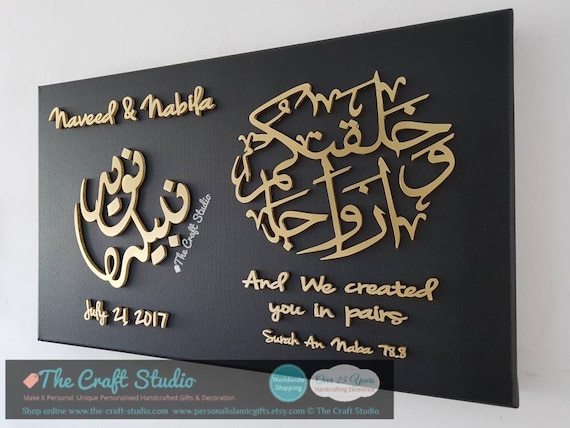 Naveed & Nabila
نوید
نبیلہ
July 21 2017
وخلقنكم
ازواجا
And We created
you in pairs
Surah An Naba 78:8
The Craft Studio
The Craft Studio
Make It Personal. Unique Personalised Handcrafted Gifts & Decoration
Shop online www.the-craft-studio.com www.personalislamicgifts.etsy.com © The Craft Studio
Worldwide
Shipping
Over 25 Years
Handcrafting Excellence